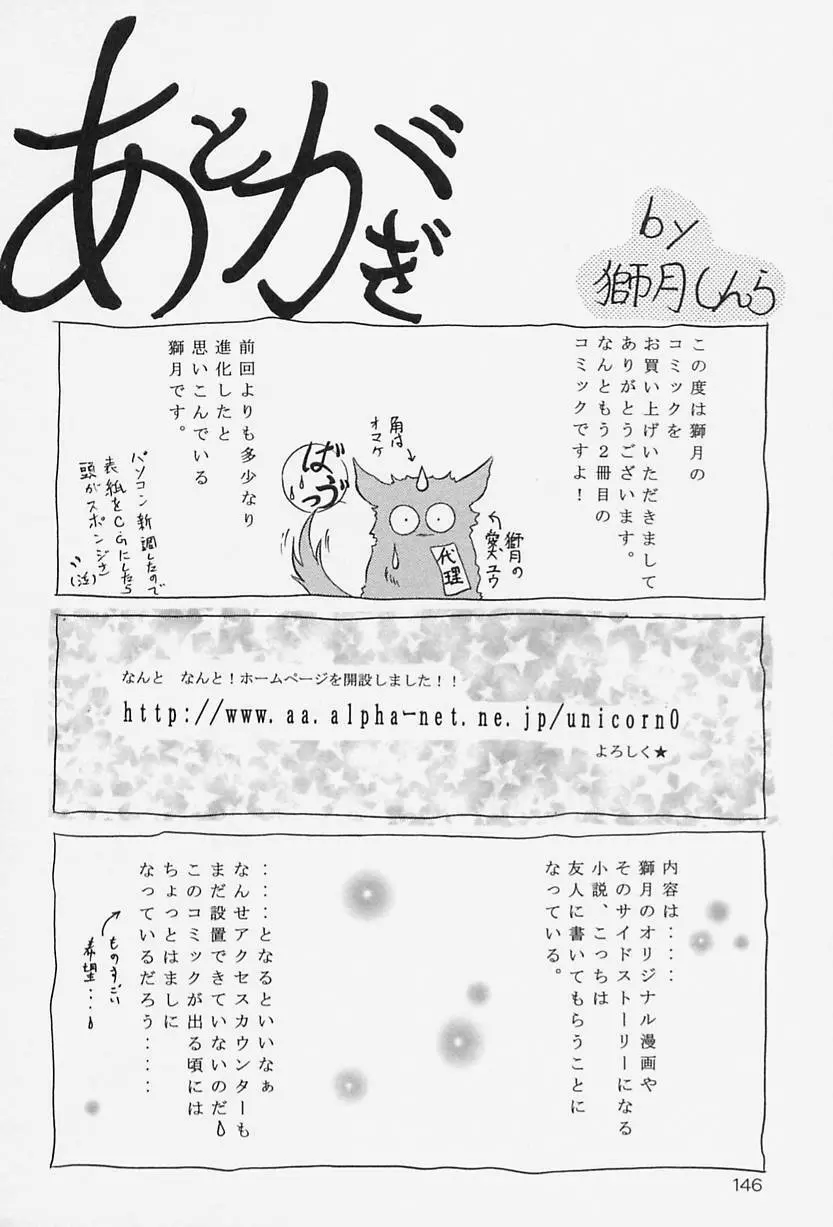 あとがぎ
by
獅月しんら
この度は獅月の
コミックを
お買い上げいただきまして
ありがとうございます。
なんともう２冊目の
コミックですよ！
獅月の
愛犬ユウ
代理
角は
オマケ
ばうっ
前回よりも多少なり
進化したと
思いこんでいる
獅月です。
パソコン新調したので
表紙をCGにしたら
頭がスポンジさ
(泣)
なんと　なんと！ホームページを開設しました！！
http://www.aa.alpha-net.ne.jp/unicorn0
よろしく★
内容は．．．．
獅月のオリジナル漫画や
そのサイドストーリーになる
小説、こっちは
友人に書いてもらうことに
なっている。
．．．．となるといいなぁ
なんせアクセスカウンターも
まだ設置できていないのだ
このコミックが出る頃には
ちょっとはましに
なっているだろう．．．．
ものすごい
希望...
146